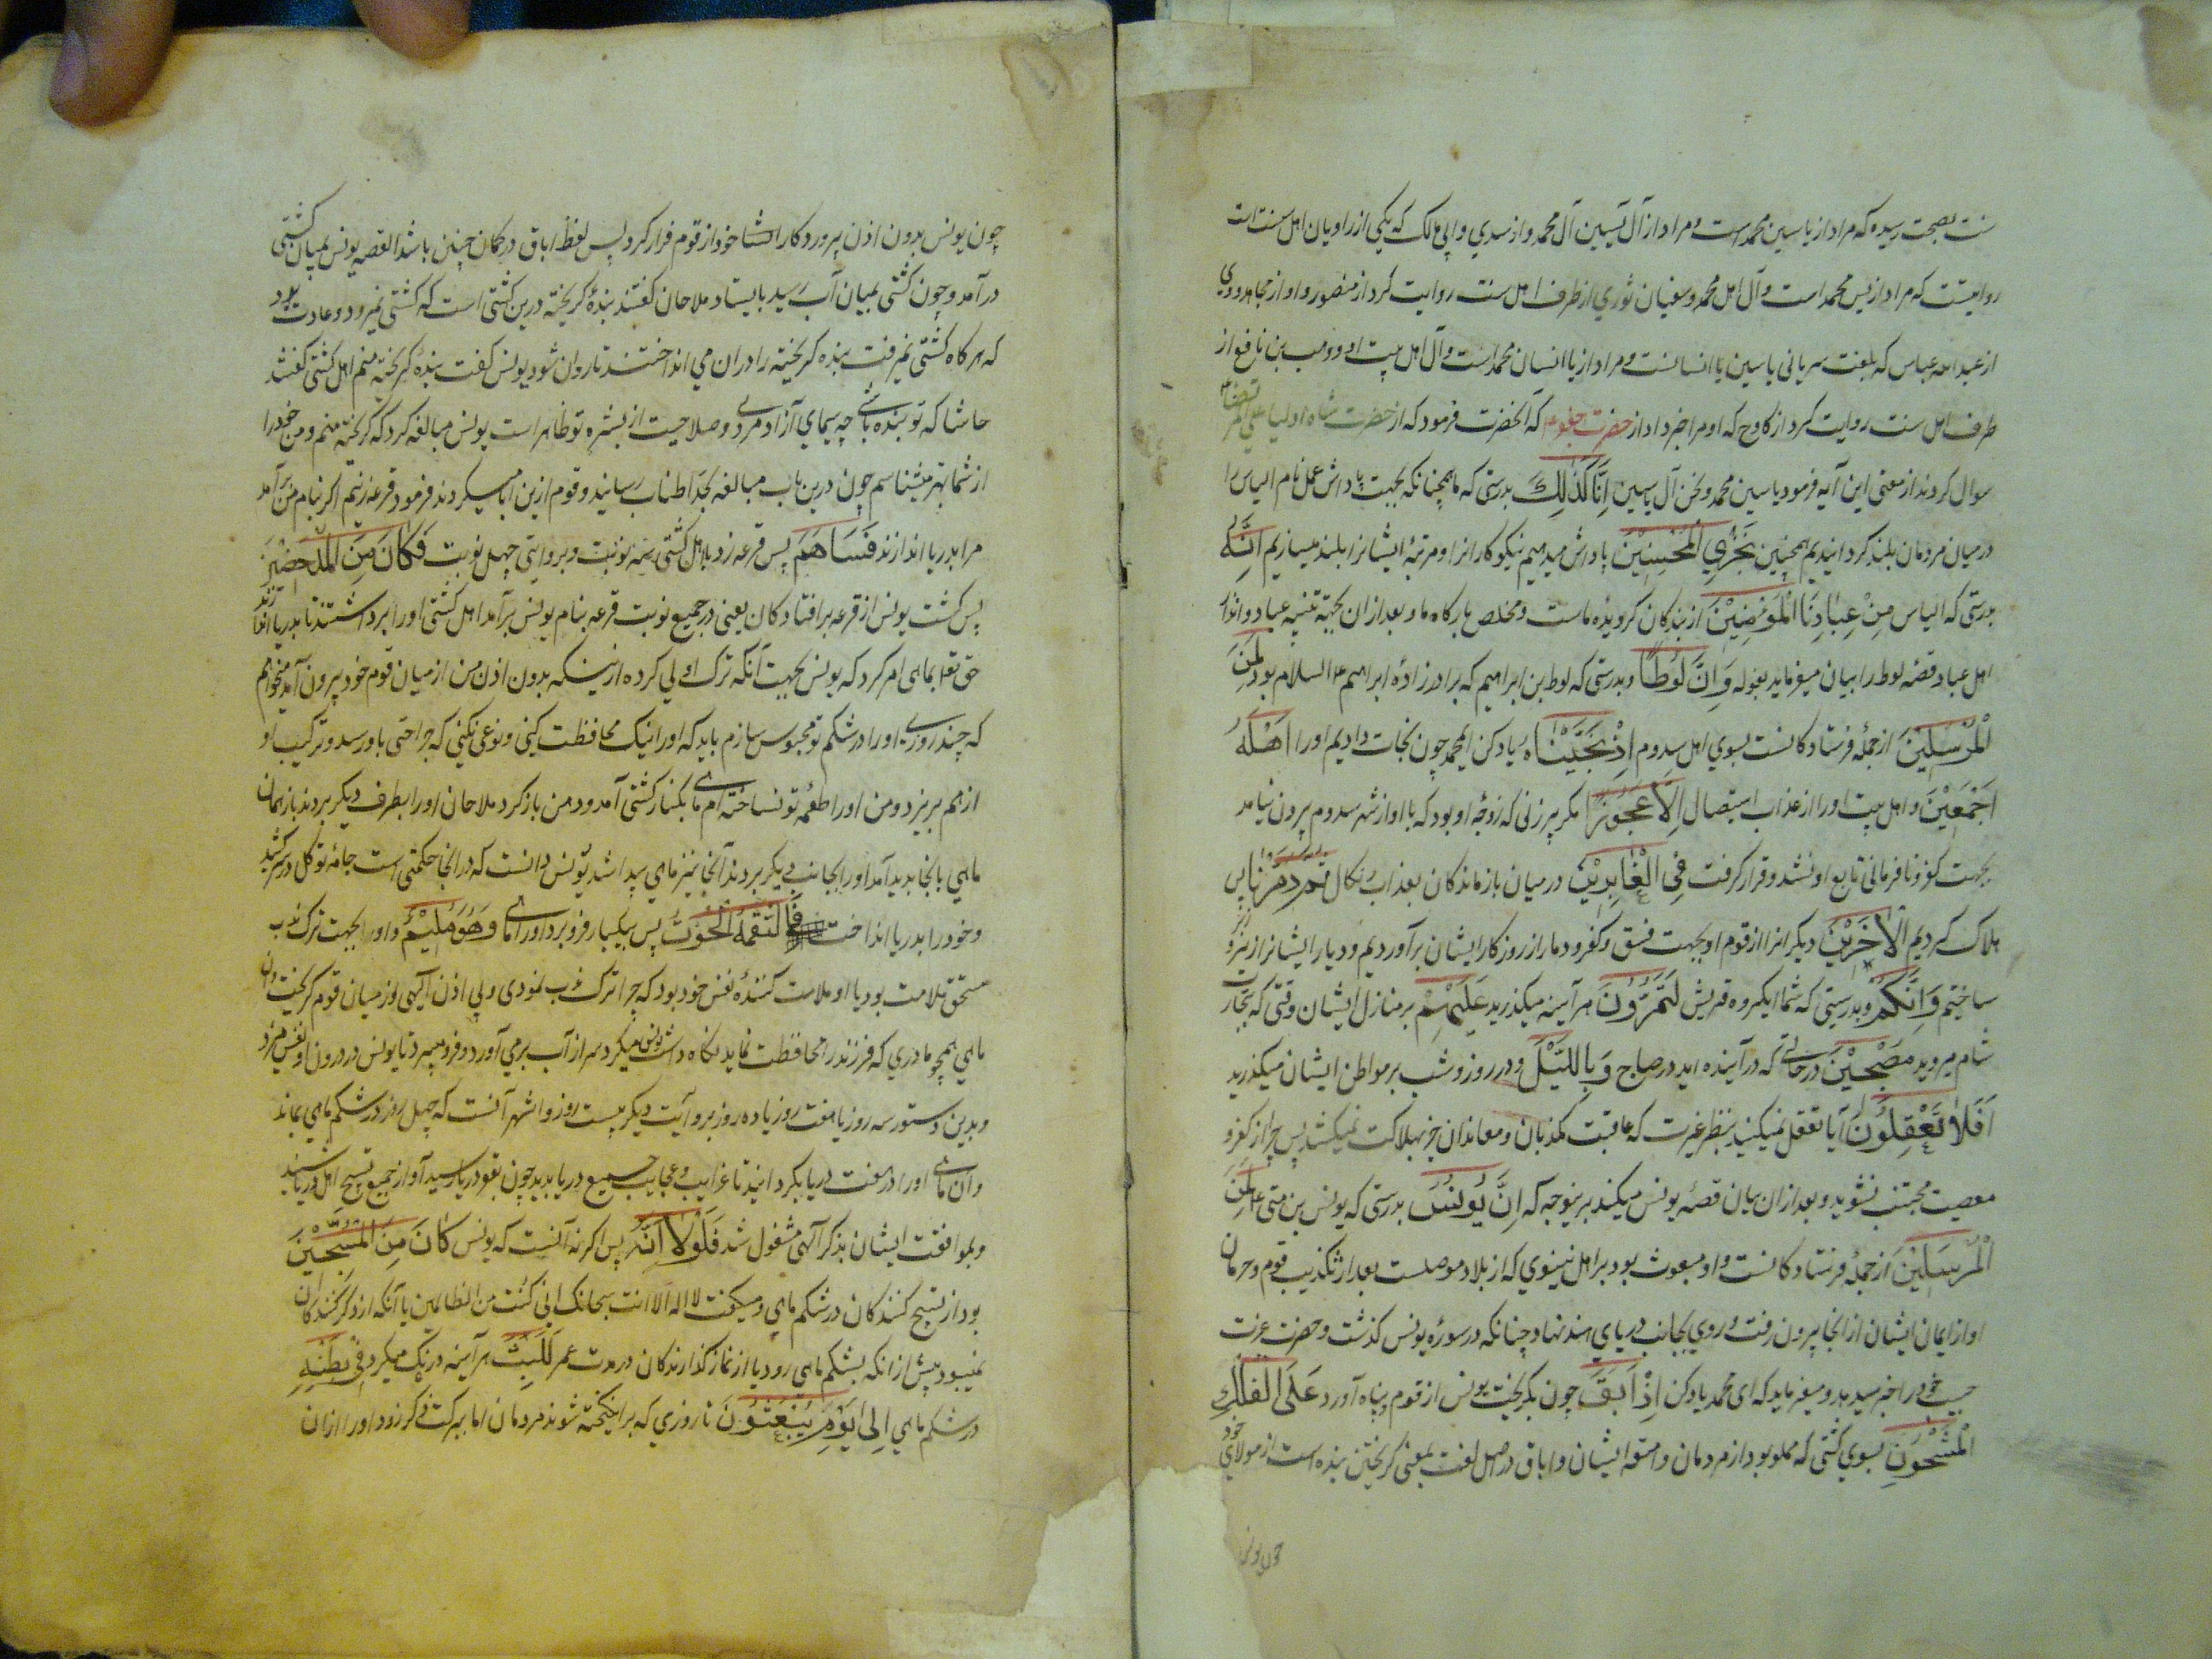 سنت بصحت رسیده که مراد از یاسین محمد است و مراد از آل یسین آل محمد و از سدی و ابی مالک که یکی از راویان اهل سنت است
روایتست که مراد از یس محمد است و آل اهل محمد و سفیان ثوری از طرف اهل سنت روایت کرد از منصور و او از مجاهد و وی
از عبد الله عباس که بلغت سریانی یاسین یا انسانست و مراد از یا انسان محمد است و آل اهل بیت او و وهب بن نافع از
طرف اهل سنت روایت کرد از کادح که او مرا خبر داد از حضرت جعفر که آنحضرت فرمود که از حضرت شاه اولیا علی مرتضی
سوال کردند از معنی این آیه فرمود یاسین محمد و نحن آل یاسین اِنَّا كَذٰلِكَ بدرستی که ما همچنانکه بجهت پاداش عمل نام الیاس را
در میان مردمان بلند کردانیدیم همچنین نَجْزِي الْمُحْسِنِيْنَ پاداش میدهیم نیکوکارانرا و مرتبهٔ ایشانرا بلند میسازیم اِنَّهُ
بدرستی که الیاس مِنْ عِبَادِنَا الْمُؤْمِنِيْنَ از بندکان کرویده ماست و مخلص بارکاه ما و بعد از ان بجهة تنبیه عباد و انذار
اهل عباد قصهٔ لوط را بیان میفرماید بقوله وَ اِنَّ لُوْطًا و بدرستی که لوط بن ابراهیم که برادرزادهٔ ابراهیم ع السلام بود لَمِنَ
الْمُرْسَلِيْنَ از جملهٔ فرستادکانست بسوی اهل سدوم اِذْ نَجَّيْنَاهُ یاد کن ایمحمد چون نجات دادیم او را اَهْلَهُ
اَجْمَعِيْنَ و اهل بیت او را از عذاب استیصال اِلَّا عَجُوْزًا مکر پیرزنی که زوجهٔ او بود که با او از شهر سدوم بیرون نیامد
بجهت کفر و نافرمانی تابع او نشد و قرار کرفت فِي الْغَابِرِيْنَ در میان بازماندکان بعذاب و نکال ثُمَّ دَمَّرْنَا پس
هلاک کردیم الْاٰخَرِيْنَ دیکرانرا از قوم او بجهت فسق و کفر و دمار از روزکار ایشان برآوردیم و دیار ایشانرا زیر و زبر
ساختیم وَ اِنَّكُمْ و بدرستی که شما ایکروه قریش لَتَمُرُّوْنَ هر آینه میکذرید عَلَيْهِمْ بر منازل ایشان وقتی که بتجارت
شام میروید مُصْبِحِيْنَ در حالتی که در آینده اید در صباح وَ بِاللَّيْلِ و در روز و شب بر مواطن ایشان میکذرید
اَفَلَا تَعْقِلُوْنَ آیا تعقل نمیکنید بنظر عبرت که عاقبت مکذبان و معاندان جز بهلاکت نمیکشد پس چرا از کفر و
معصیت مجتنب نشوید و بعد از ان بیان قصهٔ یونس میکند برینوجه که اِنَّ يُوْنُسَ بدرستی که یونس بن متی ع لَمِنَ
الْمُرْسَلِيْنَ از جملهٔ فرستادکانست و او مبعوث بود بر اهل نینوی که از بلاد موصلست بعد از تکذیب قوم و حرمان
او از ایمان ایشان از انجا بیرون رفت و روی بجانب دریای هند نهاد چنانکه در سورهٔ یونس کذشت و حضرت عزت
حبیب خود را خبر میدهد و میفرماید که ای محمد یاد کن اِذْ اَبَقَ چون بکریخت یونس از قوم و پناه آورد عَلَى الْفُلْكِ
الْمَشْحُوْنِ بسوی کشتی که مملو بود از مردمان و امتعهٔ ایشان و اباق در اصل لغت بمعنی کریختن بنده است از مولای خود
چون یونس
چون یونس بدون اذن پروردکار خود از قوم فرار کرد پس لفظ اباق در مکان چنین باشد القصه یونس بمیان کشتی
درآمد و چون کشتی بمیان آب رسید بایستاد ملاحان کفتند بندهٔ کریخته درین کشتی است که کشتی نمیرود و عادت بود
که هر کاه کشتی نمیرفت بنده کریخته را در ان می انداختند تا روان شود یونس کفت بندهٔ کریخته منم اهل کشتی کفتند
حاشا که تو بنده باشی چه سیمای آزاد مردی و صلاحیت از بشرهٔ تو ظاهر است یونس مبالغه کرد که کریخته منم و من خود را
از شما بهتر میشناسم چون درین باب مبالغه بحد اطناب رسانید و قوم ازین ابا میکردند فرمود قرعه زنیم اکر بنام من برآمد
مرا بدریا اندازند فَسَاهَمَ پس قرعه زد با اهل کشتی سه نوبت و بروایتی چهل نوبت فَكَانَ مِنَ الْمُدْحَضِيْنَ
پس کشت یونس از قرعه برافتادکان یعنی در جمیع نوبت قرعه بنام یونس برآمد اهل کشتی او را برداشتند تا بدریا اندازند
حق تعالی بماهی امر کرد که یونس بجهت آنکه ترک اولی کرده از نینکه بدون اذن من از میان قوم خود بیرون آمد میخواهم
که چند روزی او را در شکم تو محبوس سازم باید که او را نیک محافظت کنی و نوعی نکنی که جراحتی باو رسد و ترکیب او
از هم بریزد و من او را طعمهٔ تو نساخته ام ماهی بکنار کشتی آمد و دهن باز کرد ملاحان او را بطرف دیکر بردند باز همان
ماهی بانجا پدید آمد او را بجانب دیکر بردند آنجا نیز ماهی پیدا شد یونس دانست که در انجا حکمتی است جامهٔ توکل در سر کشید
و خود را بدریا انداخت فَالْتَقَمَهُ الْحُوْتُ پس بیکبار فرو برد او را ماهی وَ هُوَ مُلِيْمٌ و او را بجهت ترک ندب
مستحق ملامت بود یا او ملامت کنندهٔ نفس خود بود که چرا ترک ندب نمودی و بی اذن آلهی از میان قوم کریخت و ان
ماهی همچو مادری که فرزند را محافظت نماید نکاه داشت یونس میکرد سر از آب برمی آورد و فرو میبرد تا یونس در درون او نفس میزد
و بدین دستور سه روز یا هفت روز یا ده روز بروایت دیکر بیست روز و اشهر آنست که چهل روز در شکم ماهی بماند
و ان ماهی او را در هفت دریا بکردانید تا غرایب و عجایب جمیع دریا بدید چون بقعر دریا رسید آواز جمیع تسبیح اهل دریا شنید
و بموافقت ایشان بذکر آلهی مشغول شد فَلَوْلَا اَنَّهُ پس اکر نه آنست که یونس كَانَ مِنَ الْمُسَبِّحِيْنَ
بود از تسبیح کنندکان در شکم ماهی و میکفت لا اله الا انت سبحانک انی کنت من الظالمین یا آنکه از ذکر کنندکان
نمیبود پیش از انکه بشکم ماهی رود یا از نماز کذارندکان در مدت عمر لَلَبِثَ هر آینه درنک میکرد فِيْ بَطْنِهٖ
در شکم ماهی اِلٰى يَوْمِ يُبْعَثُوْنَ تا روزی که برانکیخته شوند مردمان اما ببرکت ذکر زود او را از ان